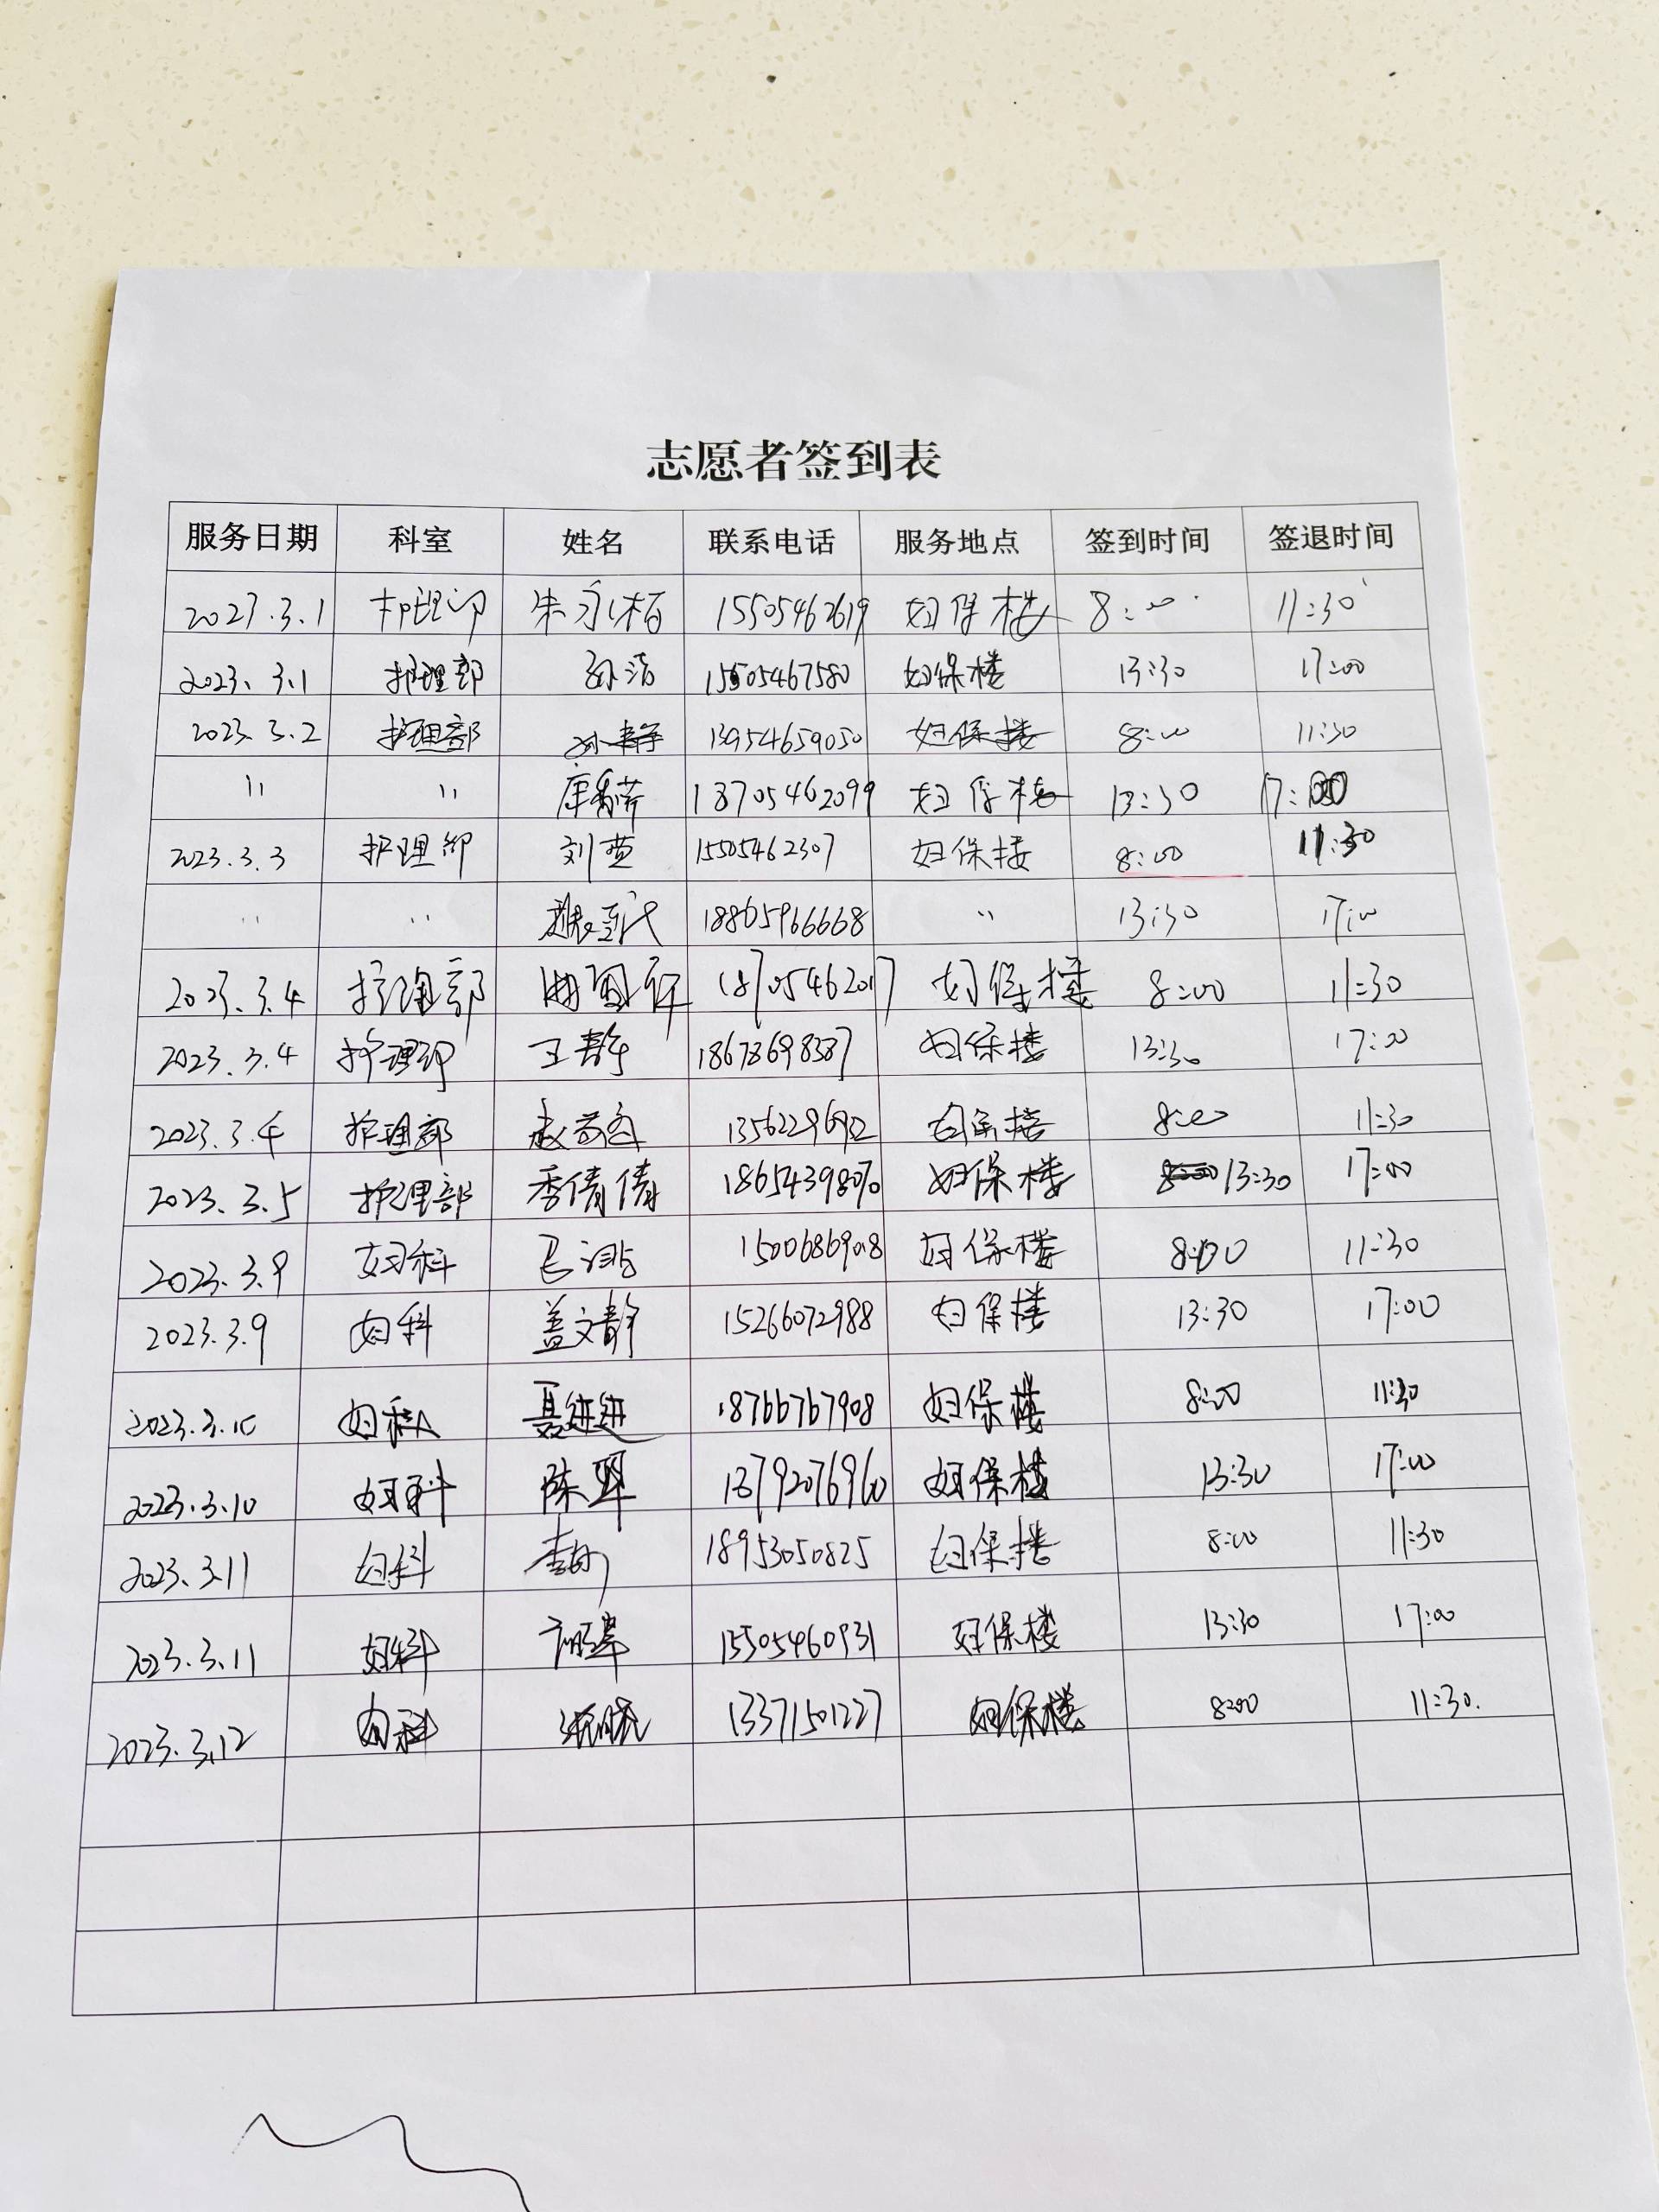 志愿者签到表
服务日期 科室 姓名 联系电话 服务地点 签到时间 签退时间
2023.3.1 护理部 朱永梅 15505462619 妇保楼 8:00 11:30
2023.3.1 护理部 孙洁 15505467580 妇保楼 13:30 17:00
2023.3.2 护理部 孙静 13954659050 妇保楼 8:00 11:30
〃 〃 18705462099 妇保楼 13:30 17:00
2023.3.3 护理部 刘 15505462307 妇保楼 8:00 11:30
〃 〃 18865966668 〃 13:30 17:00
2023.3.4 护理部 18705462017 妇保楼 8:00 11:30
2023.3.4 护理部 王静 18678698387 妇保楼 13:30 17:00
2023.3.4 护理部 妇保楼 8:00 11:30
2023.3.5 护理部 季倩倩 18654398070 妇保楼 13:30 17:00
2023.3.9 妇科 妇保楼 8:00 11:30
2023.3.9 妇科 盖文静 15266072988 妇保楼 13:30 17:00
2023.3.10 妇科 聂进进 18766767908 妇保楼 8:00 11:30
2023.3.10 妇科 陈 妇保楼 13:30 17:00
2023.3.11 妇科 18953050825 妇保楼 8:00 11:30
2023.3.11 妇科 15505460931 妇保楼 13:30 17:00
2023.3.12 妇科 13371501227 妇保楼 8:00 11:30.